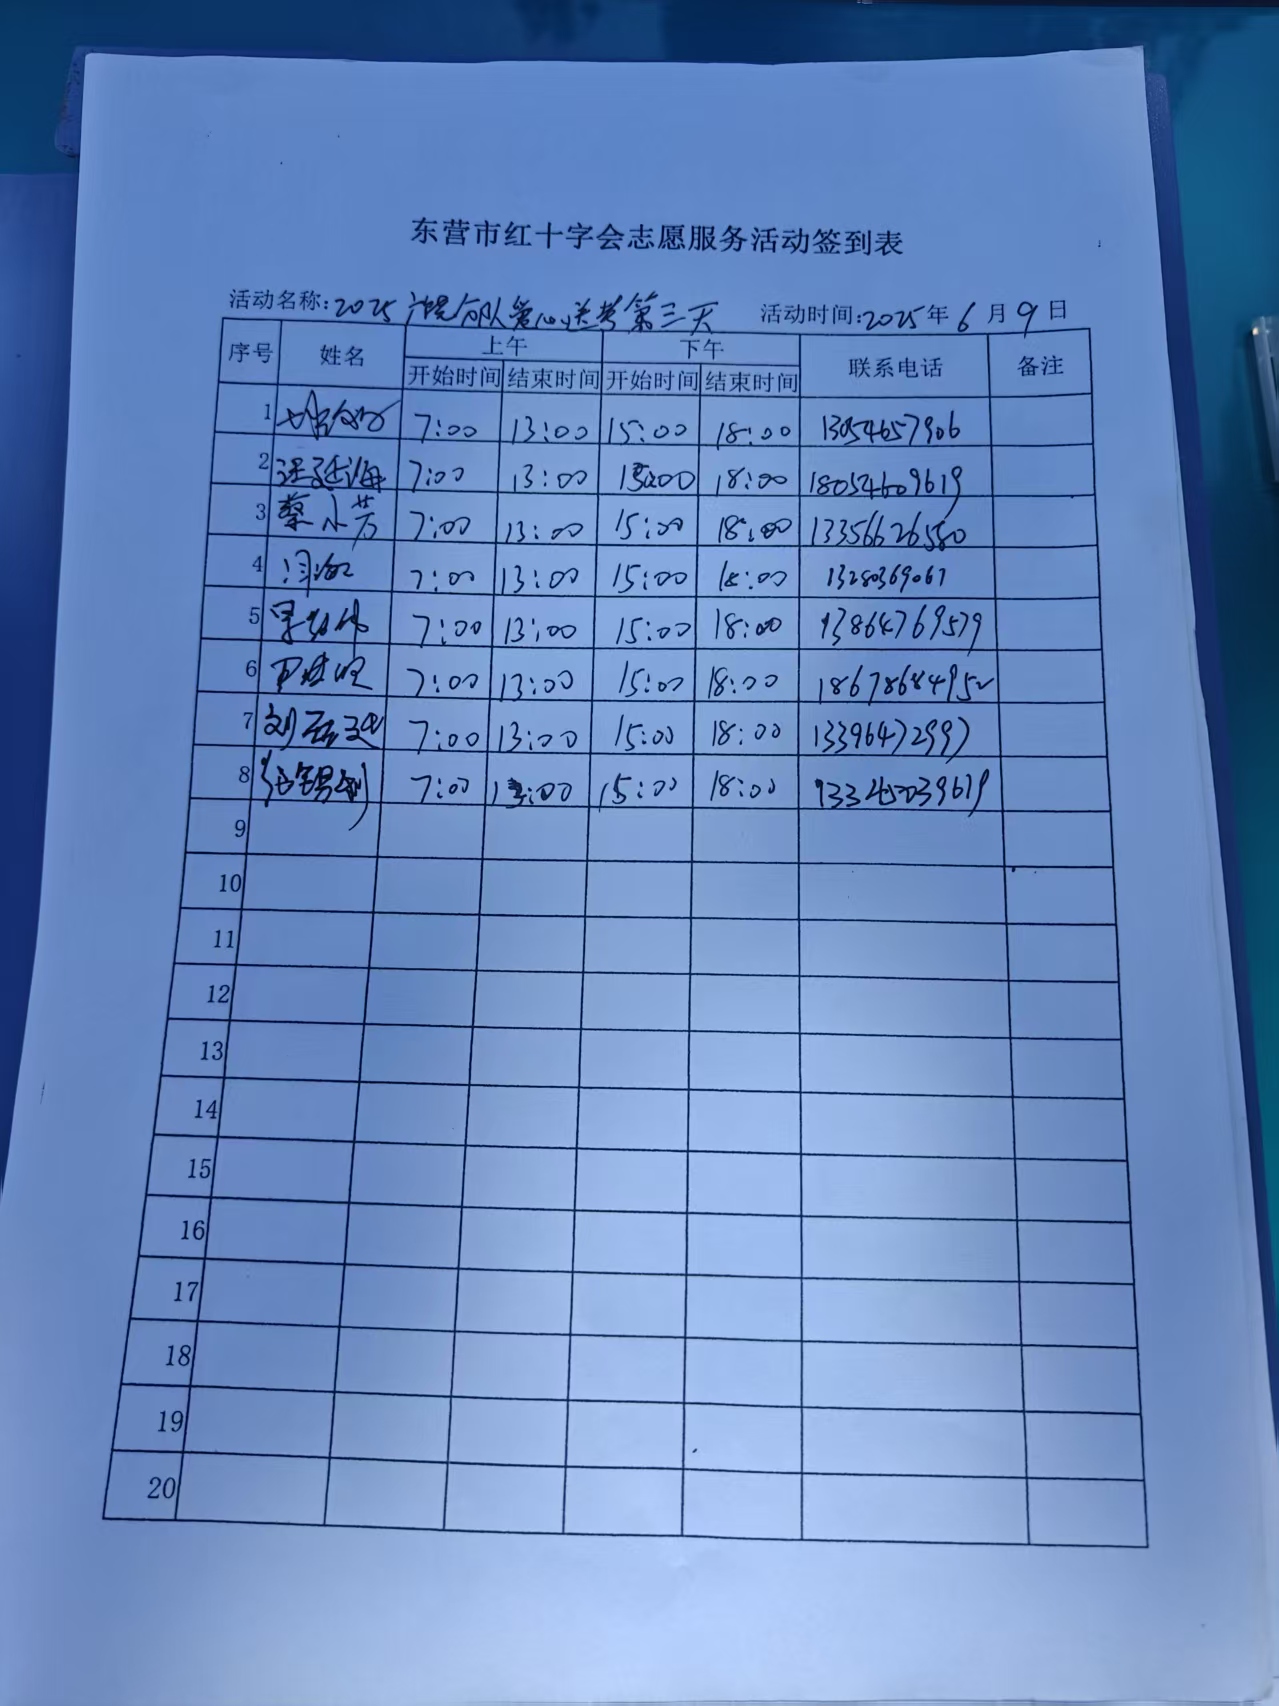 东营市红十字会志愿服务活动签到表
活动名称:2025 分队爱心送考第三天 活动时间:2025年6月9日
序号 姓名 上午 下午 联系电话 备注
开始时间 结束时间 开始时间 结束时间
1 7:00 13:00 15:00 18:00 13054657906
2 7:00 13:00 15:00 18:00 18054609619
3 蔡小芳 7:00 13:00 15:00 18:00 13356626580
4 7:00 13:00 15:00 18:00 13280369067
5 7:00 13:00 15:00 18:00 13864769579
6 7:00 13:00 15:00 18:00 18678684952
7 7:00 13:00 15:00 18:00 13396472997
8 7:00 13:00 15:00 18:00
9
10
11
12
13
14
15
16
17
18
19
20